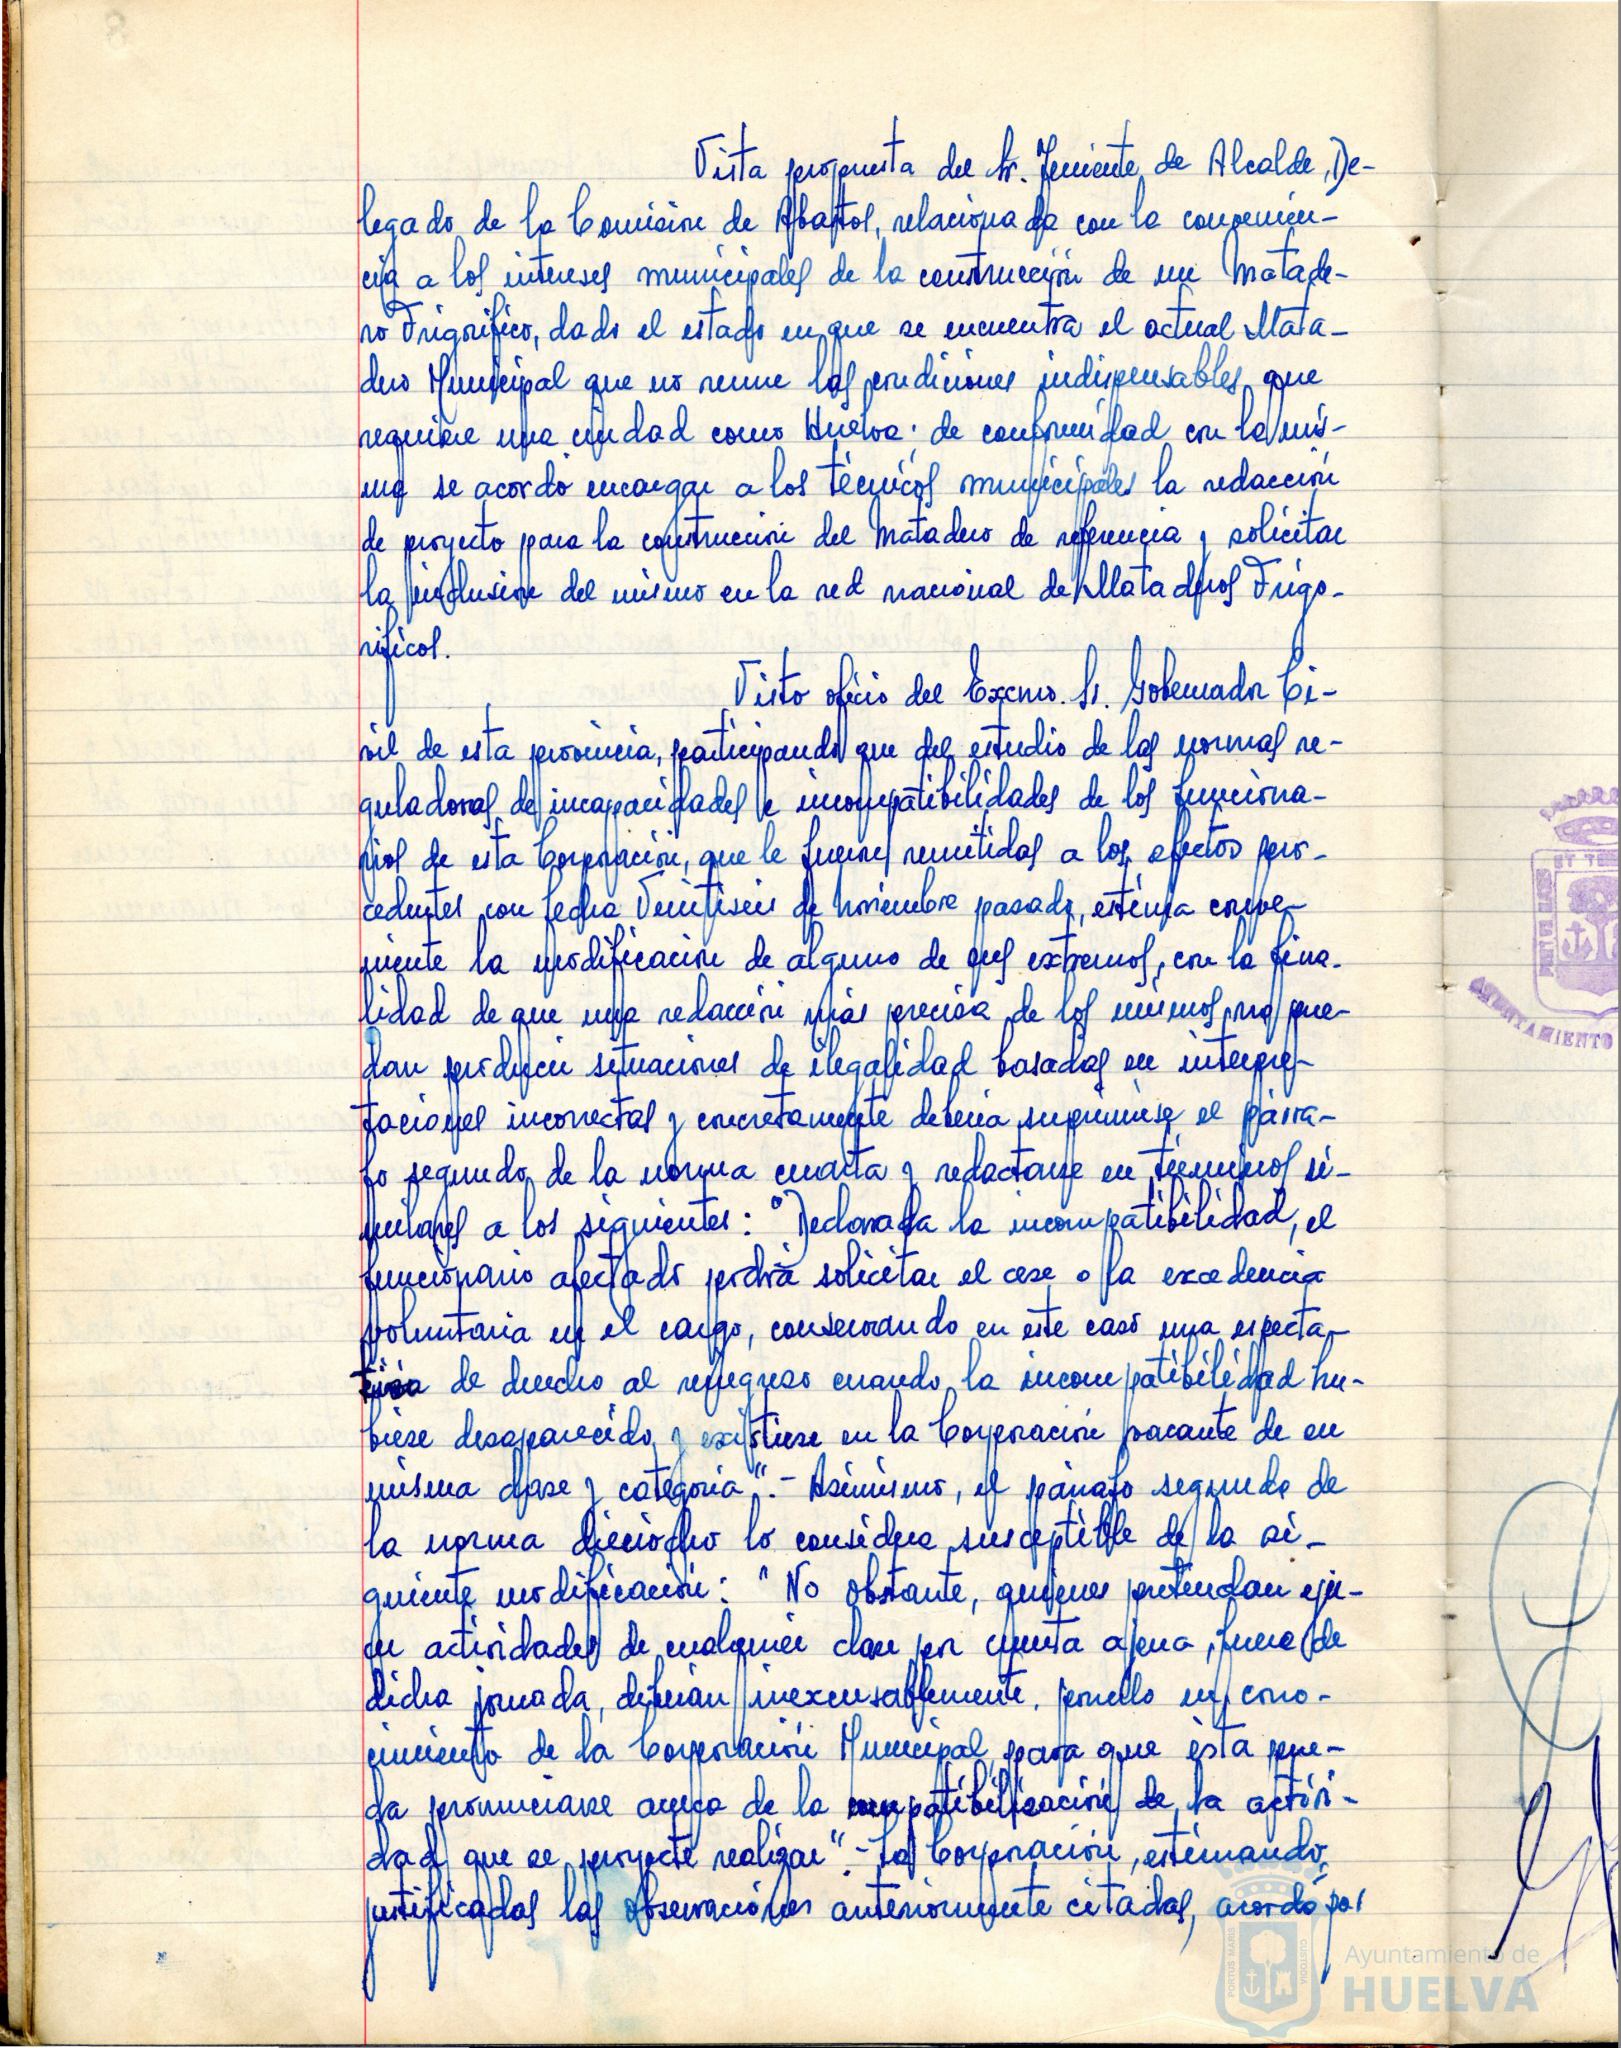 Vista propuesta del Sr. Teniente de Alcalde, De-
legado de la Comisión de Abastos, relacionada con la convenien-
cia a los intereses municipales de la construcción de un Matade-
ro Frigorífico, dado el estado en que se encuentra el actual Mata-
dero Municipal que no reune las condiciones indispensables que
requiere una ciudad como Huelva; de conformidad con la mis-
ma se acordó encargar a los técnicos municipales la redacción
de proyecto para la construcción del Matadero de referencia y solicitar
la inclusión del mismo en la red nacional de Mataderos Frigo-
rificos.
Visto oficio del Excmo. Sr. Gobernador Ci-
vil de esta provincia, participando que del estudio de las normas re-
guladoras de incapacidades e incompatibilidades de los funciona-
rios de esta Corporación, que le fueron remitidas a los efectos pro-
cedentes con fecha Veintiseis de noviembre pasado, estima conve-
niente la modificación de alguno de sus extremos, con la fina-
lidad de que una redacción más precisa de los mismos, no pue-
dan producir situaciones de ilegalidad basadas en interpre-
taciones incorrectas y concretamente debería suprimirse el párra-
fo segundo de la norma cuarta y redactarse en términos si-
milares a los siguientes: "Declarada la incompatibilidad, el
funcionario afectado podrá solicitar el cese o la excedencia
voluntaria en el cargo, conservando en este caso una especta-
tiva de derecho al reingreso cuando la incompatibilidad hu-
biese desaparecido y existiese en la Corporación vacante de su
misma clase y categoría".- Asimismo, el párrafo segundo de
la norma dieciocho lo considera susceptible de la si-
guiente modificación: "No obstante, quienes pretendan ejer-
cer actividades de cualquier clase por cuenta ajena, fuera de
dicha jornada, deberían inexcusablemente, ponerlo en cono-
cimiento de la Corporación Municipal, para que ésta pue-
da pronunciarse acerca de la compatibilización de la activi-
dad que se proyecte realizar".- La Corporación, estimando
justificadas las observaciones anteriormente citadas, acordó por
AYUNTAMIENTO
PORTUS MARIS
CUSTODIA
Ayuntamiento de
HUELVA